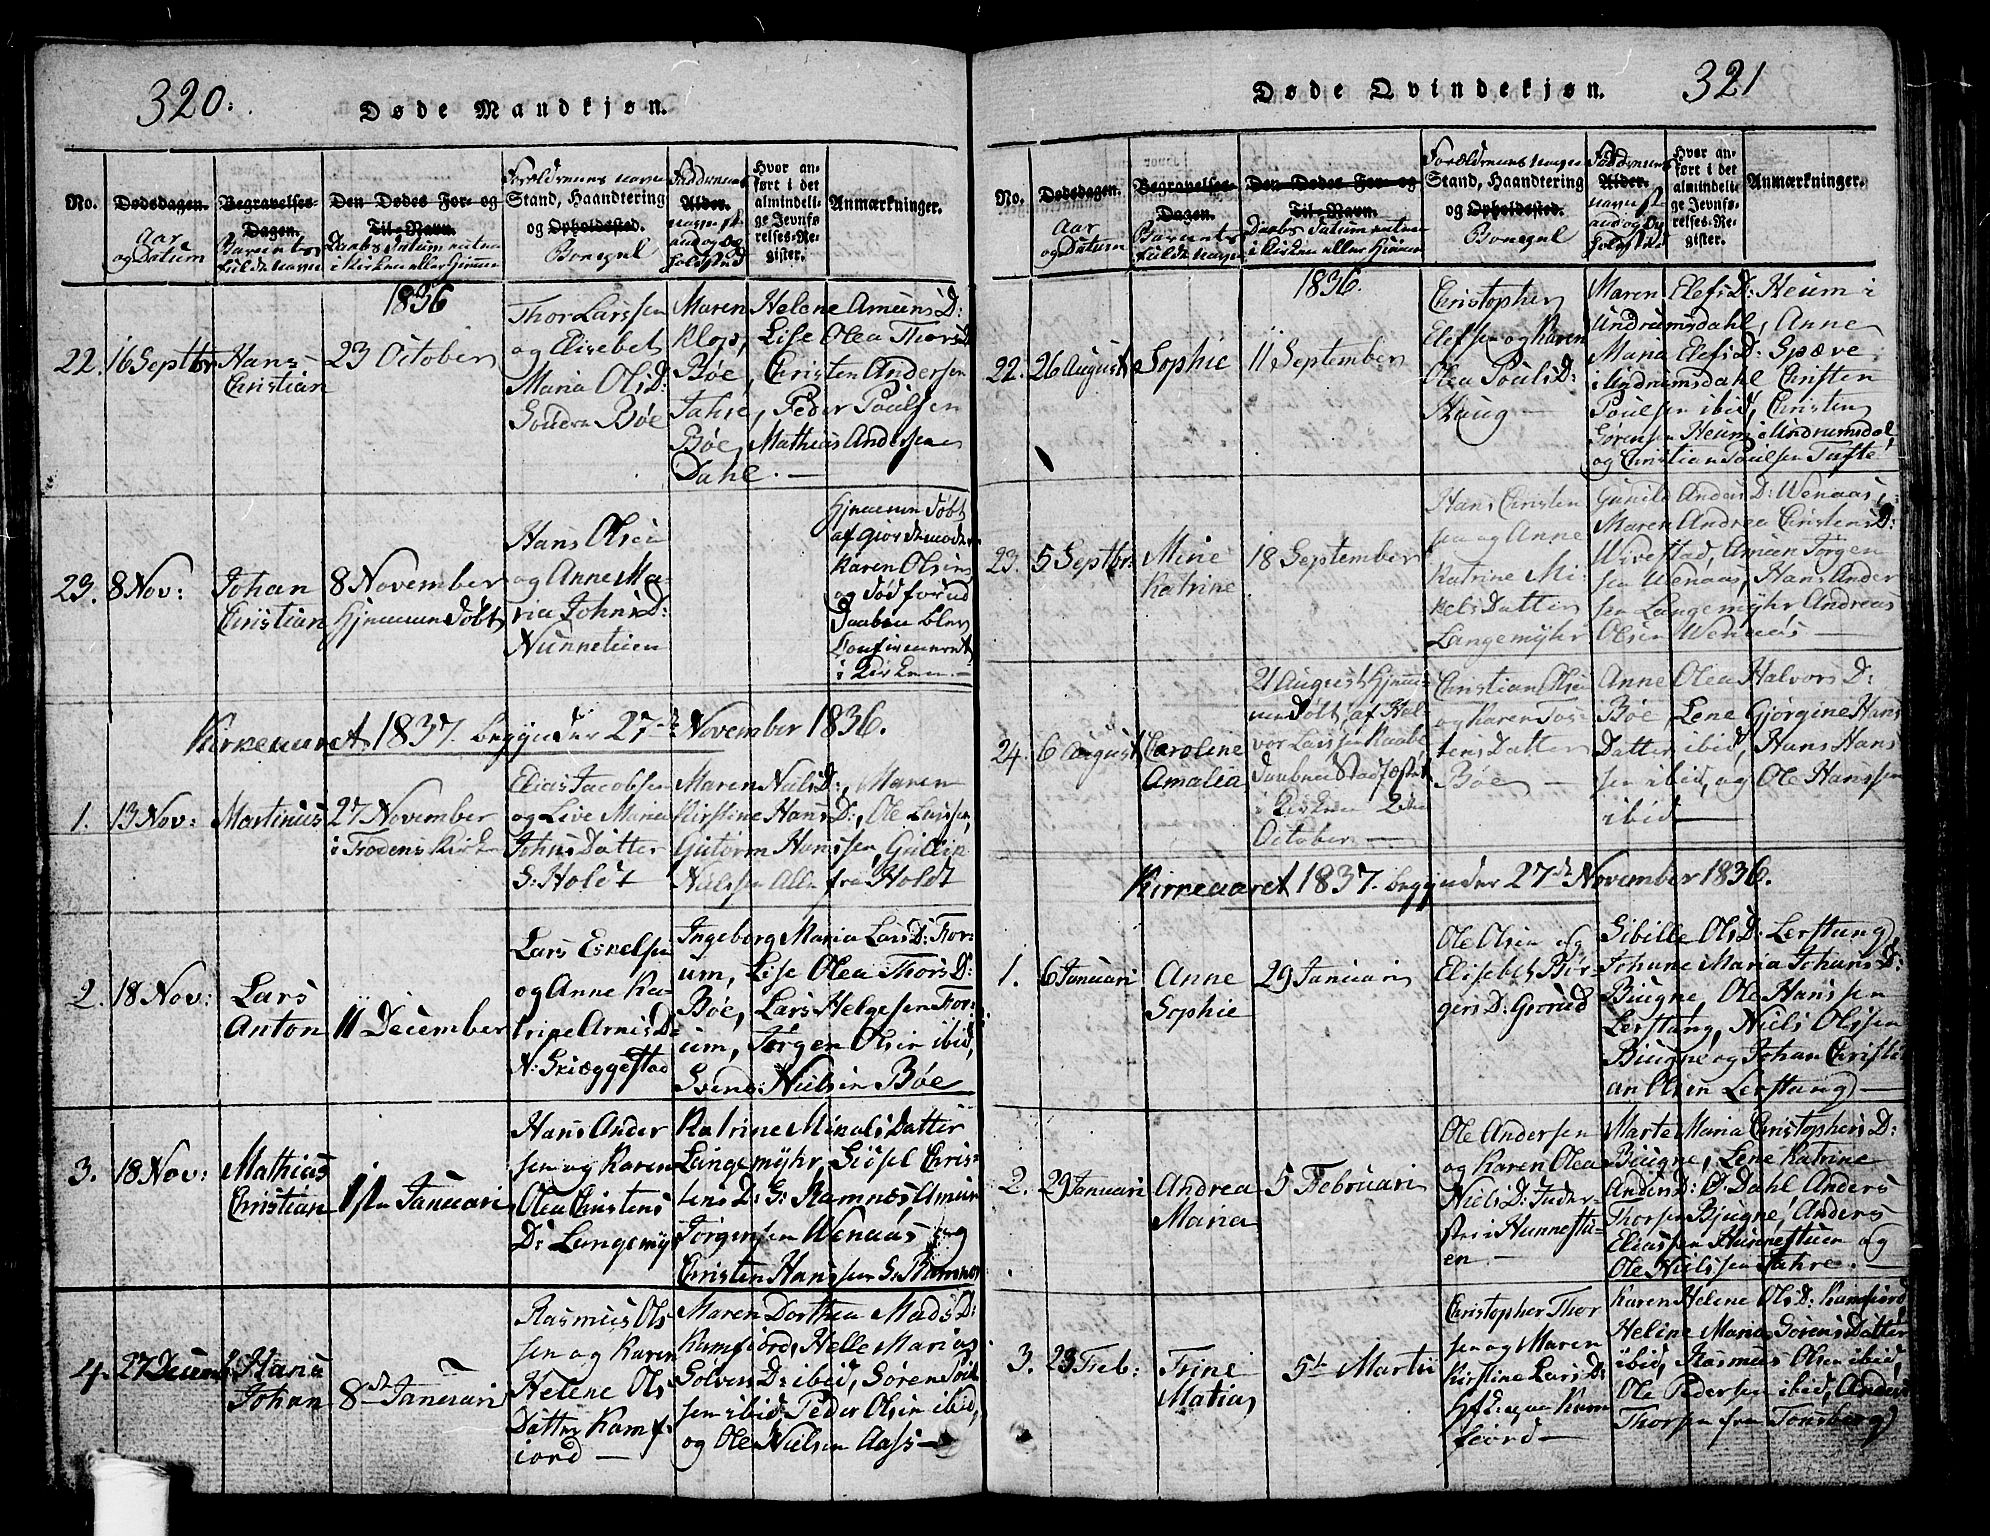 320.
Døde Mandkjøn.
No.
Dødsdagen.
Aar
og Datum
Begravelses-
Dagen.
Barnets
fulde navn
Den Dødes For- og
Til-Navn.
Daabs Datum enten
i Kirken eller Hjemme
Forældrenes navn
Stand, Haandtering
og Opholdssted.
Bonegul
Faddernes
Alder.
navn st-
and og Op
holdsted
Hvor an-
ført i det
almindeli-
ge Jevnfø-
relses-Re-
gister.
Anmærkninger.
1836
22.
16 Septbr
Hans
Christian
23 October
Thor Larssen
og Elisebet
Maria Ols D:
Søndre Bøe
Maren Helene Amuns D:
Klop, Lise Olea Thors D
Bøe, Christen Andersen
Jahre, Peder Poulsen
Bøe, Mathias Andersen
Dahl. —
23.
8 Nov:
Johan
Christian
8 November
Hjemmen Døbt
Hans Olsen
og Anne Ma-
ria Johns D:
Nunnetuen
Hjemmen Døbt
af giordemoder
Karen Olsens
og Død forud
Daaben blev
Confirmeret
i Kirken. —
Kirkeaaret 1837. begynder 27de November 1836.
1.
13 Nov:
Martinus
27 November
i Frodens Kirke
Elias Jacobsen
og Live Marie
Johns Datter
S: Holdt
Maren Nils D:, Maren
Kirstine Hans D:, Ole Larssen,
Gutorm Hanssen, Gullip
Nielssen Alle fra Holdt
2.
18 Nov:
Lars
Anton
11 December
Lars Eskelsen
og Anne Ka-
trine Arnis D-
N: Skiæggestad
Ingeborg Maria Lars D: For-
um, Lise Olea Thors D:
Bøe, Lars Helgesen For-
um, Jørgen Olsen ibid,
Svend: Nielsen Bøe
3.
18 Nov:
Mathias
Christian
1ste Januari
Hans Ander
sen og Karen
Olea Christens
D: Langemyr
Katrine Mikals Datter
Langemyhr, Gisel Chris-
tens D: S: Ramnæs, Amun
Jørgensen Wenaas og
Christen Hanssen S: Ramnæs
4.
27 Decemb
Hans
Johan
8de Januari
Rasmus Ols
sen og Karen
Helene Ols
Datter Kamf
iord —
Maren Dorthea Mads D:
Kamfiord, Helle Maria
Solves D: ibid, Søren
sen ibid, Peder Olsen ibid,
og Ole Nielsen Aass —
Døde Qvindekjøn.
321
No.
Dødsdagen.
Aar
og Datum
Begravelses-
Dagen.
Barnets
fulde navn
Den Dødes For- og
Til-Navn.
Daabs Datum enten
i Kirken eller Hjemme
Forældrenes navn
Stand, Haandtering
og Opholdssted.
Bonegul
Faddernes
Alder.
navn st-
and og Op
holdsted
Hvor an-
ført i det
almindeli-
ge Jevnfø-
relses-Re-
gister.
Anmærkninger.
1836.
22.
26 August
Sophie
11 September
Christopher
Elefsen og Karen
Olea Pouls D:
Haug —
Maren Elefs D: Heum i
Undrumsdahl, Anne
Maria Elefs D: Spæve
i Undrumsdahl Christen
Poulsen ibid, Christen
Sørensen Heum i Undrumsdal,
og Christian Poulsen Tufte
23.
5 Septbr:
Mine
Katrine
18 September
Hans Christen
sen og Anne
Katrine Mi-
kels Datter
Langemyhr
Gunild Anders D: Wenaas,
Maren Andrea Christens D:
Wivestad, Amun Jørgen
sen Wenaas, Hans Ander
sen Langemyhr Andreas
Olsen Wenaas —
24.
6 August
Caroline
Amalia
21 August Hjem-
men Døbt af Hal
vor Larssen Raabe
Daaben Stadfæstet
i Kirken 2den
October —
Christian Olsen
og Karen Tos-
tens Datter
Bøe —
Anne Olea Halvors D:
Bøe, Lene Gjørgine Hans
Datter ibid, Hans Hans
sen ibid, og Ole Hanssen
ibid —
Kirkeaaret 1837. begynder 27de November 1836.
1.
6 Januari
Anne
Sophie
29 Januari
Ole Olsen og
Elisebet Bør-
gers D: Gronud
Sibille Ols D: Lerstang
Johane Maria Johans D:
Biugne, Ole Hanssen
Lerstang, Niels Olssen
Biugne og Johan Christi
an Olsen Lerstang —
2.
29 Januari
Andrea
Maria
5 Februari
Ole Andersen
og Karen Olea
Niels D: Inder-
ster i Hunnestu-
en —
Marte Maria Christophers D:
Biugne, Lene Katrine
Anders D: Ø: Dahl Anders
Thorsen Bjugne, Anders
Eliassen Hunnestuen og
Ole Nielssen Jahre. —
3.
23 Feb:
Trine
Matia
5te Martii
Christopher Thor
sen og Maren
Kirstine Lars D:
Kam
fiord —
Karen Helene Ols D: Kamfiord,
Helene Maria Sørens Datter
ibid, Rasmus Olsen ibid,
Ole Pedersen ibid, Anders
Thorsen fra Tønsberg